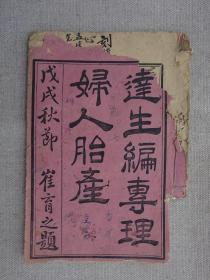 達生編專理
婦人胎產
戊戌秋節 崔育之題